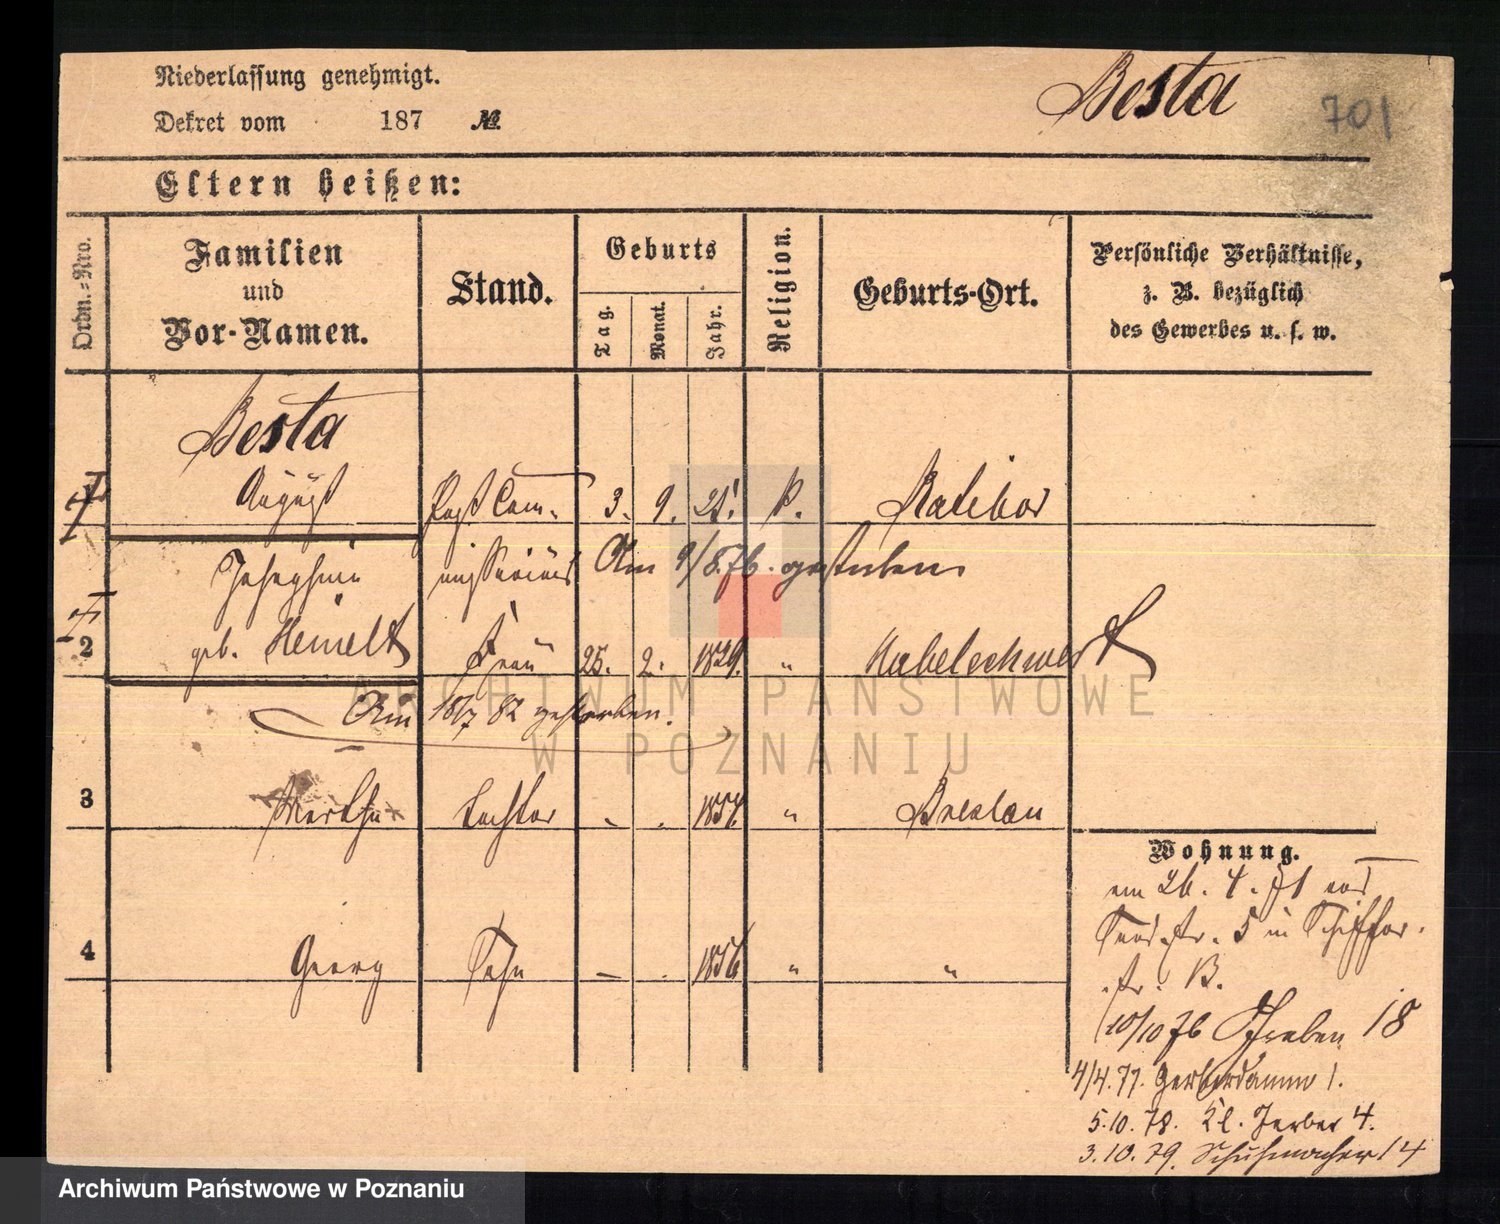 Niederlassung genehmigt.
Besta
701
Dekret vom 187 №
Eltern heißen:
Ordn.=Nro.
Familien
und
Vor-Namen.
Stand.
Geburts
Tag.
Monat.
Jahr.
Religion.
Geburts-Ort.
Persönliche Verhältnisse,
z. B. bezüglich
des Gewerbes u. s. w.
Besta
August Post Com- 3. 9. 21. k. Ratibor
Josephine missarius Am 9/8.76. gestorben
2 geb. Heinelt Frau 25. 2. 1829. " Habelschwerdt
Am 18/7 82 gestorben.
3 Martha Tochter - . 1854 " Breslau
Wohnung.
4 Georg Sohn - . 1856 " "
am 26. 4. 71 von
5 in Schiffer-
str. B.
10/10 76 Graben 18
4/4.77. Gerberdamm 1.
5.10.78. Kl. Gerber 4.
3.10.79. Schuhmacher 14
ARCHIWUM PAŃSTWOWE
W POZNANIU
Archiwum Państwowe w Poznaniu